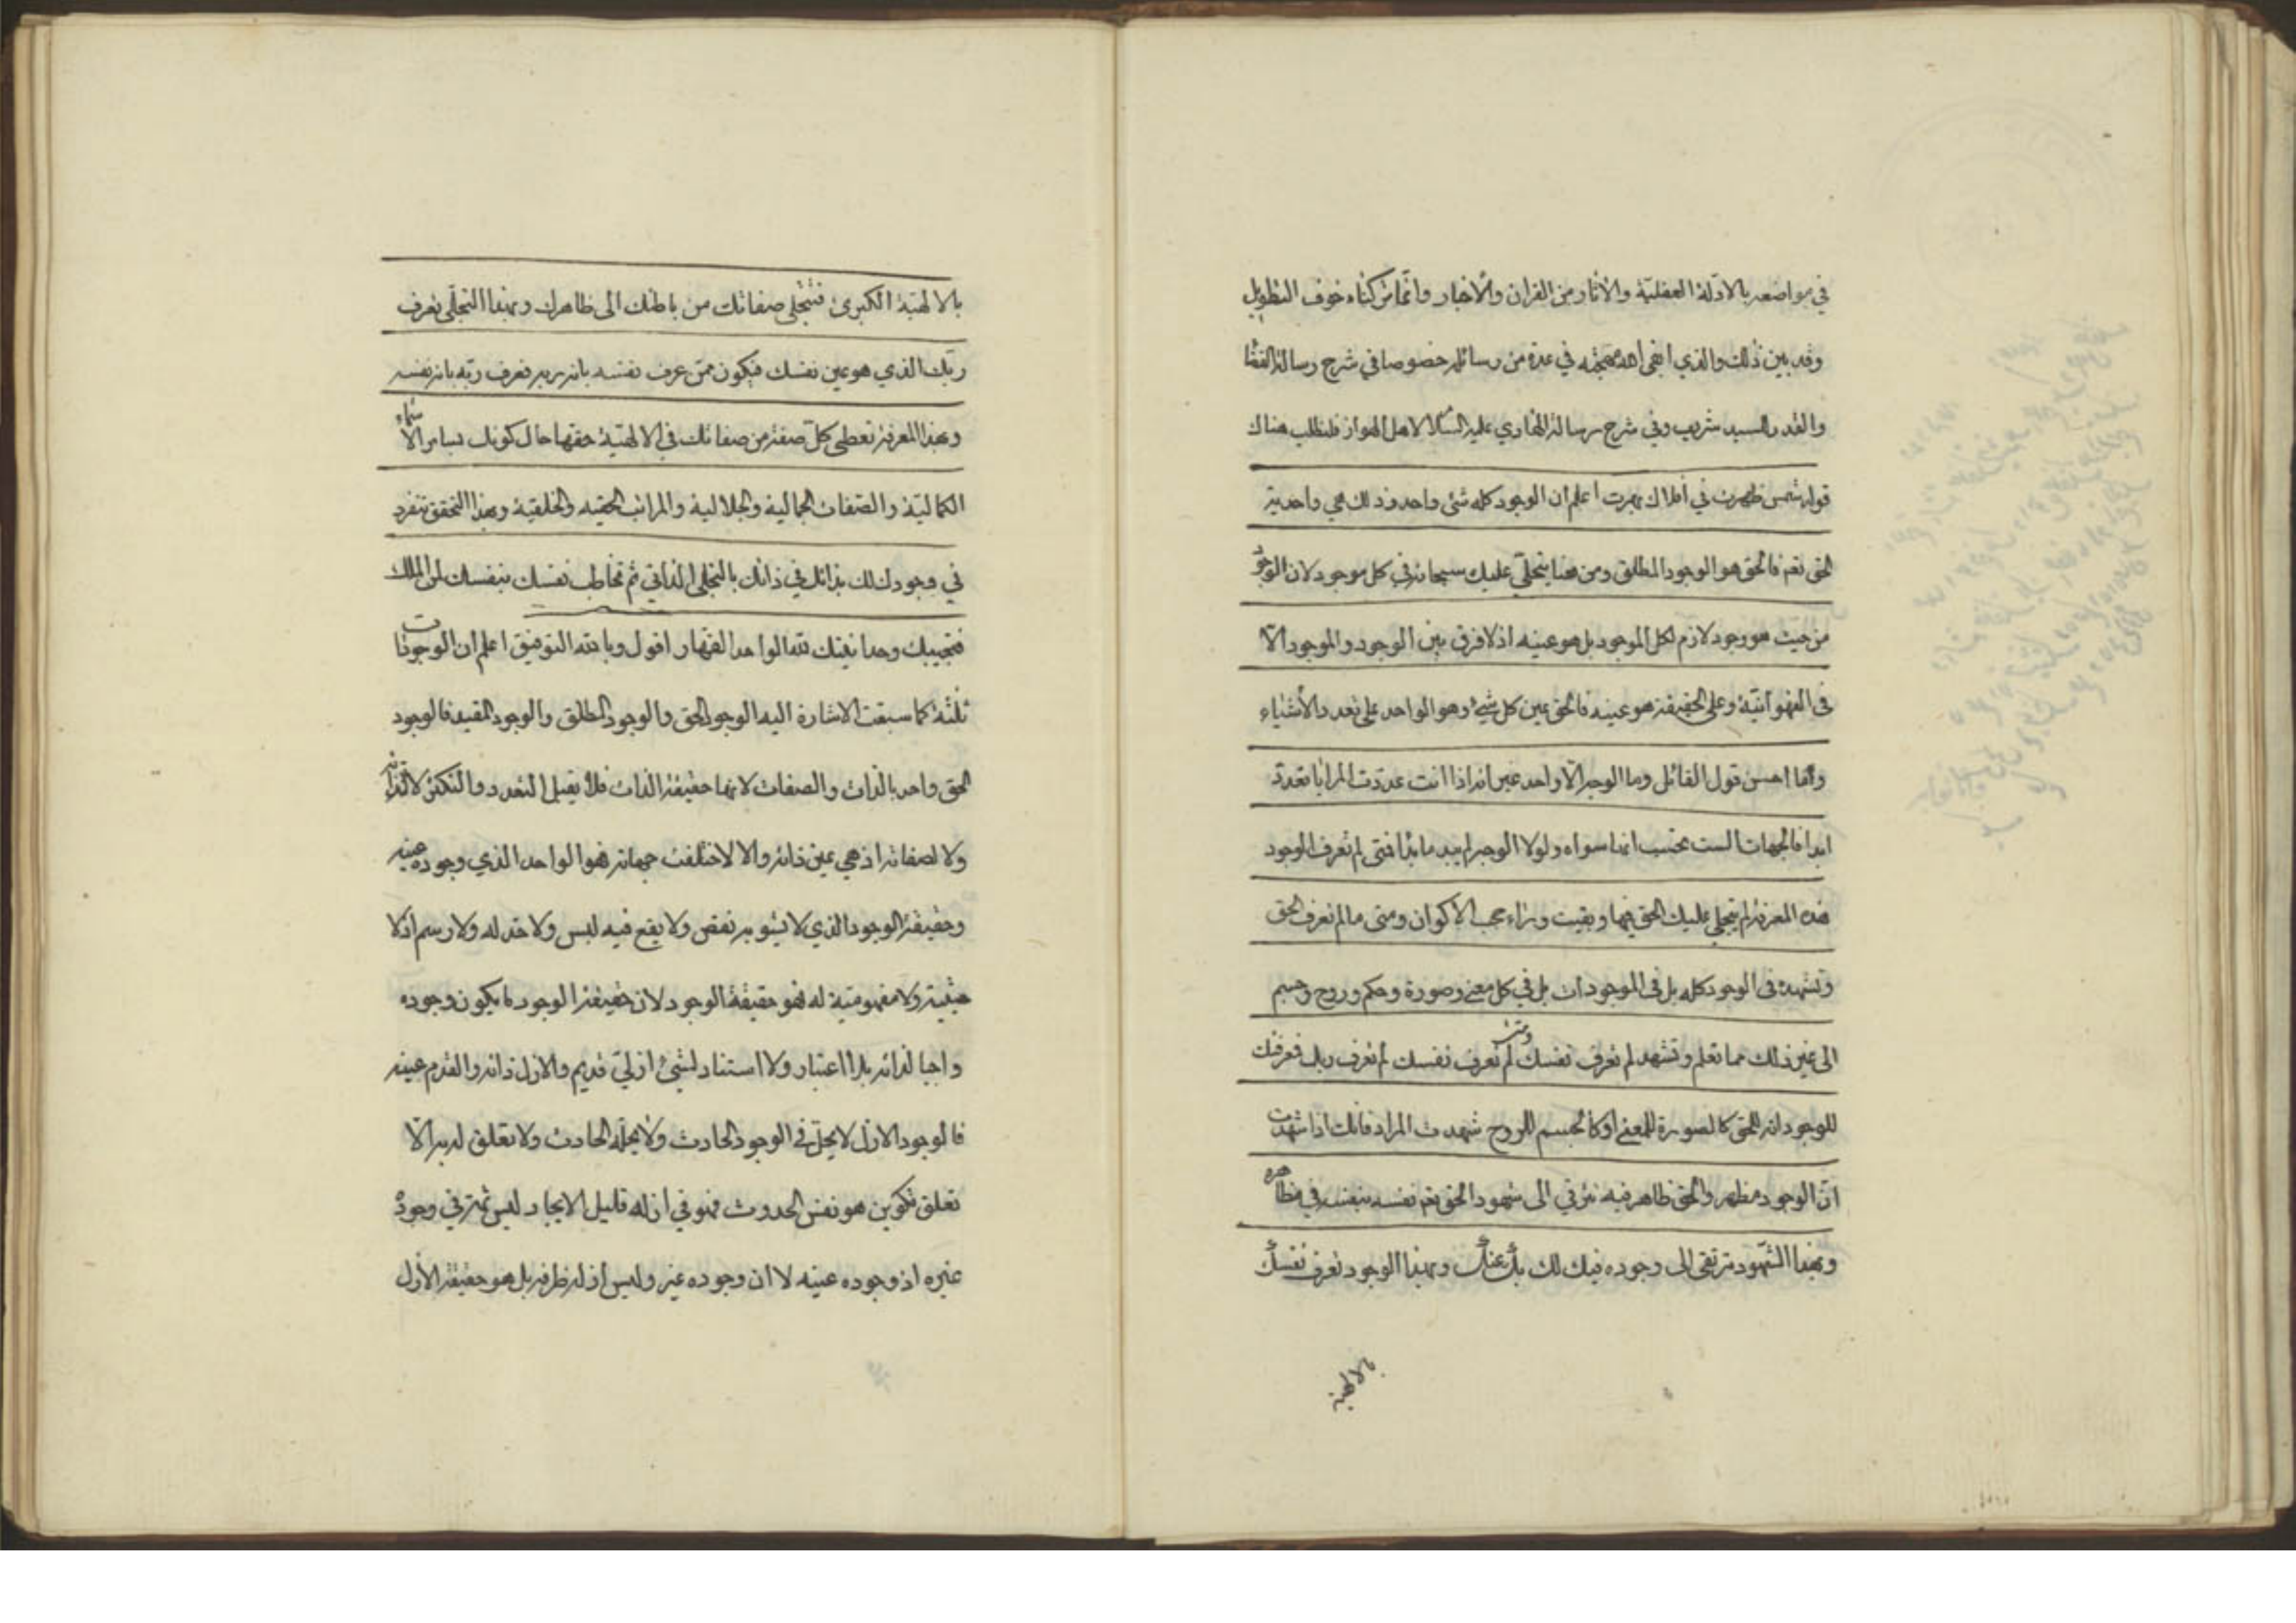 في مواضعه بالادلة العقلية والاثار من القران والاخبار وانما تركناه خوف التطويل
وقد بين ذلك والذي ابقى الله مهجته في عدة من رسائله خصوصا في شرح رسالة القضا
والقدر للسيد شريف وفي شرح رسالة الهادي عليه السلام لاهل الاهواز فليطلب هناك
قوله شمس ظهرت في أفلاك بهرت اعلم أن الوجود كله شئ واحد وذلك هي واحدية
الحق نعم فالحق هو الوجود المطلق ومن هنا يتجلى عليك سبحانه في كل موجود لان الوجود
من حيث هو وجود لازم لكل الموجود بل هو عينه اذ لا فرق بين الوجود والموجود الا
في الفهوانية وعلى الحقيقة هو عينه فالحق عين كل شيء وهو الواحد على تعدد الأشياء
وما احسن قول القائل وما الوجه الا واحد غير انه اذا انت عددت المرايا تعددا
ابدا فالجهات الست تحسب انها سواه ولولا الوجه لم يبد ما بدا فمتى لم تعرف الوجود
هذه المعرفة لم يتجلى عليك الحق فيها وبقيت وراء حجب الاكوان ومتى ما لم تعرف الحق
وتشهده في الوجود كله بل في الموجودات بل في كل معنى وصورة وحكم وروح وجسم
الى غير ذلك مما تعلم وتشهد لم تعرف نفسك ومتى لم تعرف نفسك لم تعرف ربك فعرفت
للوجود انه للحق كالصورة للمعنى او كالجسم للروح شهدت المراد فانك اذا شهدت
ان الوجود مظهر والحق ظاهر فيه ترقى الى شهود الحق نفسه بنفسه في مظاهره
وبهذا الشهود ترتقى الى وجوده فيك لك بك عنك وبهذا الوجود تعرف نفسك
بالالهية
بالالهية الكبرى فتتجلى صفاتك من باطنك الى ظاهرك وبهذا التجلى تعرف
ربك الذي هو عين نفسك فتكون ممن عرف نفسه بانه ربه فعرف ربه بانه نفسه
وبهذا المعرفة تعطى كل صفة من صفاتك في الالهية حقها حال كونك بسائر الاسماء
الكمالية والصفات الجمالية والجلالية والمراتب الحقيه والخلقية وبهذا التحقق تنفرد
في وجودك لك بذاتك في ذاتك بالتجلى الذاتي ثم تخاطب نفسك بنفسك لمن الملك
فتجيبك وحدانيتك لله الواحد القهار اقول وبالله التوفيق اعلم ان الوجودات
ثلثة كما سبقت الاشارة اليه الوجود الحق والوجود المطلق والوجود المقيد فالوجود
الحق واحد بالذات والصفات لانها حقيقة الذات فلا يقبل التعدد والتكثر لا لذاته
ولا لصفاته اذ هي عين ذاته والا لاختلفت جهاته فهو الواحد الذي وجوده عينه
وحقيقة الوجود الذي لا يشوبه نقص ولا يقع فيه لبس ولا حد له ولا رسم اذ لا
حيثية ولا مفهومية له فهو حقيقة الوجود لان حقيقة الوجود ما يكون وجوده
واجبا لذاته بلا اعتبار ولا استناد لشئ ازلي قديم والازل ذاته والقدم عينه
فالوجود الازل لا يحل في الوجود الحادث ولا يحله الحادث ولا تعلق له به الا
تعلق تكوين هو نفس الحدوث فهو في ازله قليل الايجاد ليس ثمة في وجود
غيره اذ وجوده عينه لا ان وجوده غيره وليس ازله ظرفه بل هو حقيقة الأزل